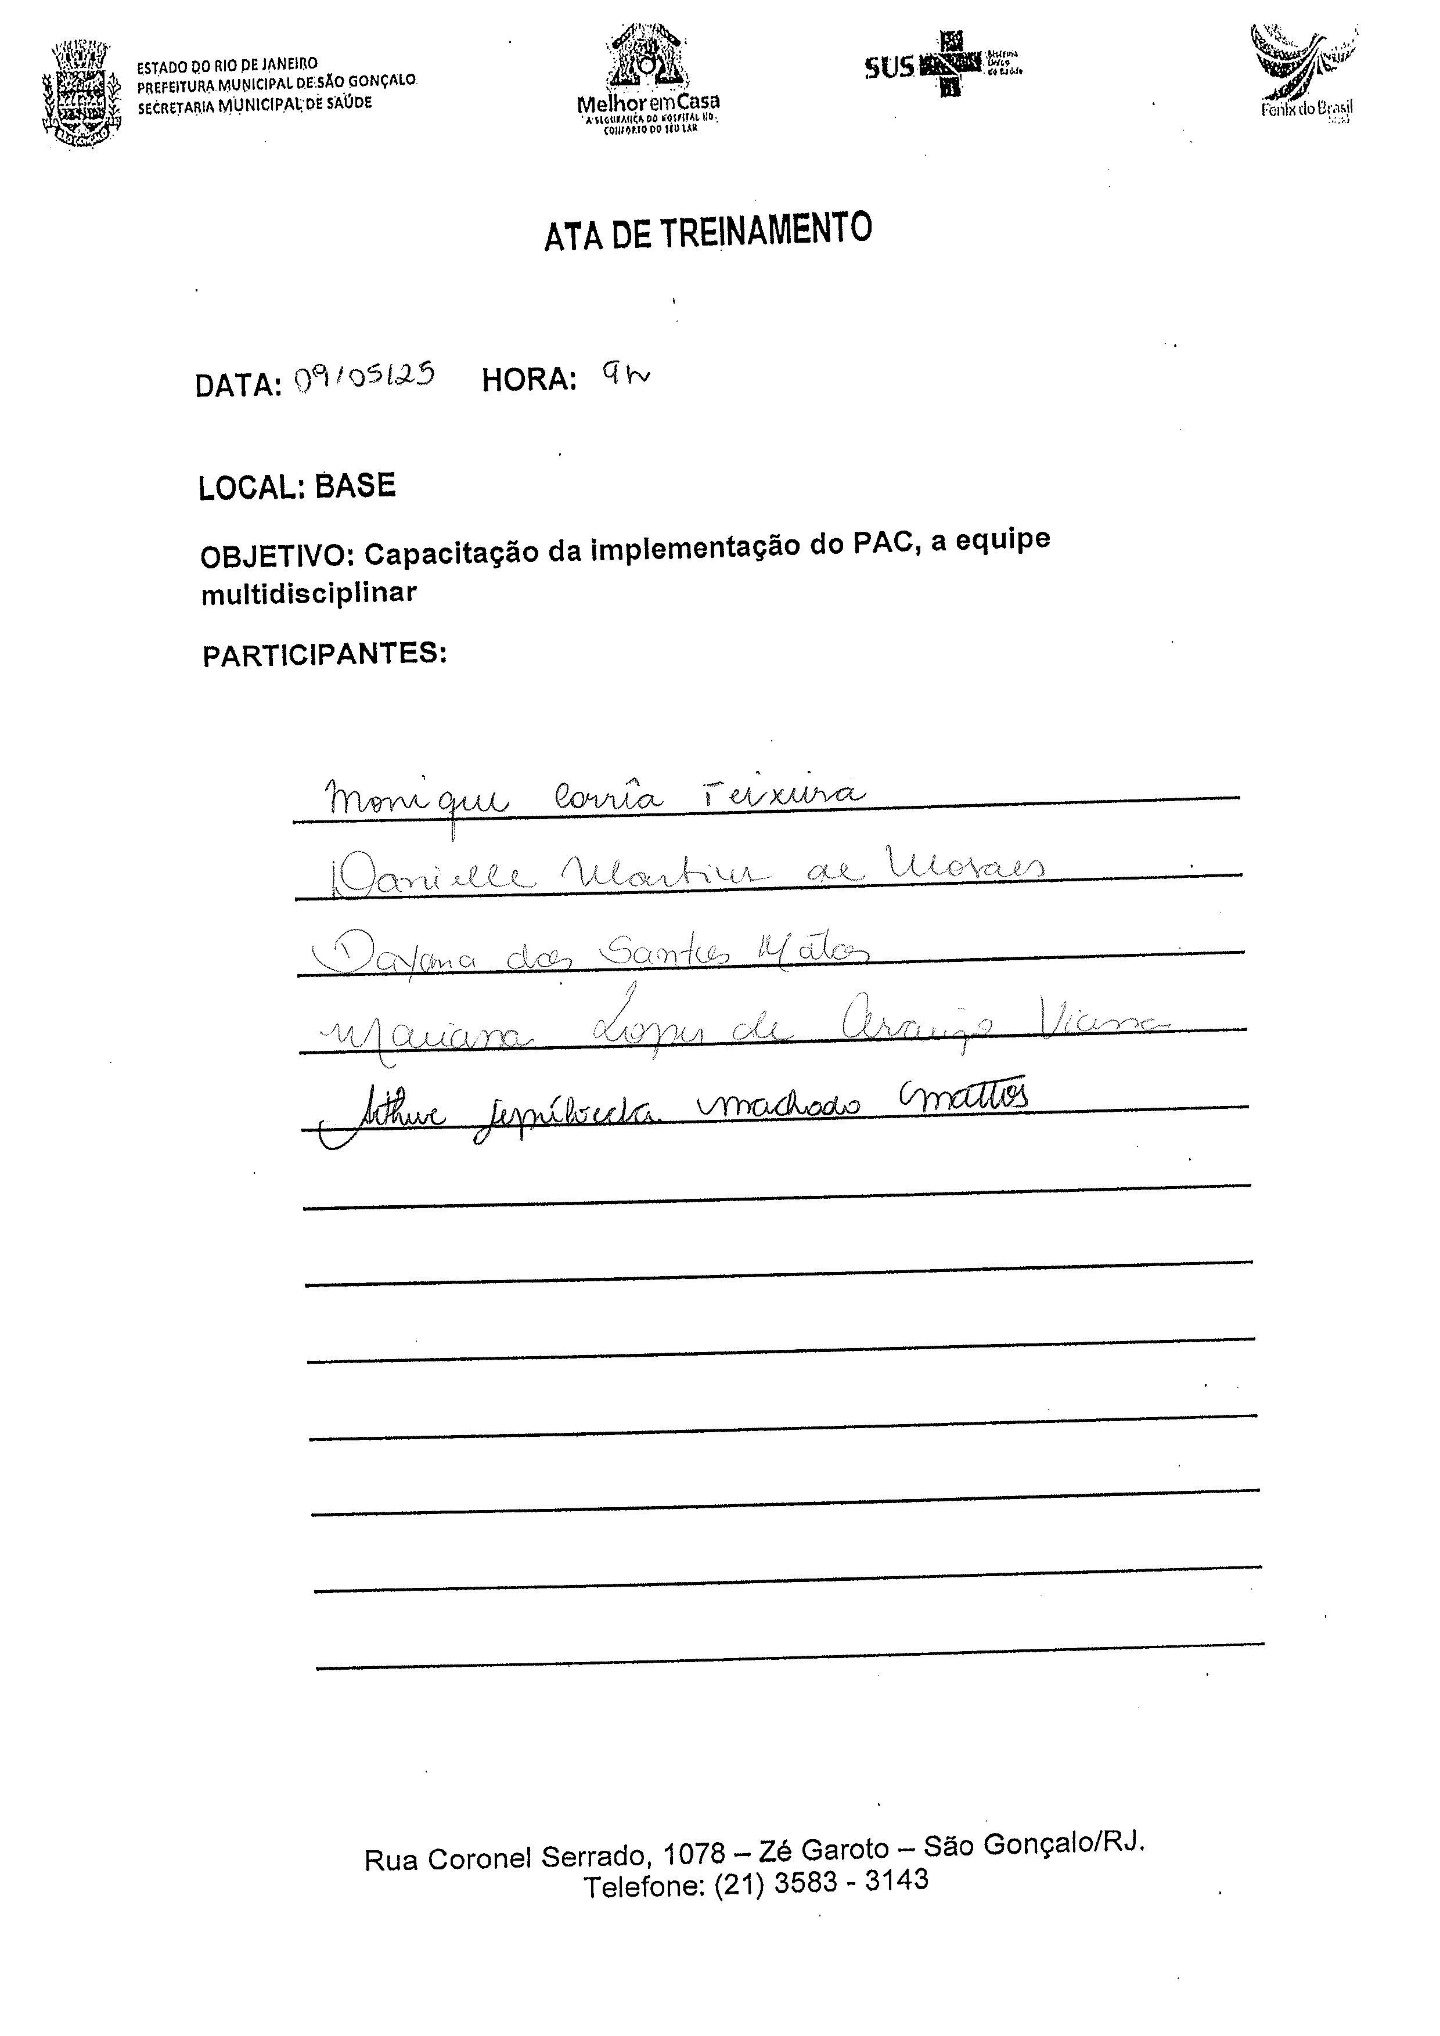 ESTADO DO RIO DE JANEIRO
PREFEITURA MUNICIPAL DE SÃO GONÇALO
SECRETARIA MUNICIPAL DE SAÚDE
MelhoremCasa
A SEGURANÇA DO HOSPITAL NO
CONFORTO DO SEU LAR
SUS
Sistema
Único
de Saúde
Fenix do Brasil
ATA DE TREINAMENTO
DATA: 09/05/25 HORA: 9h
LOCAL: BASE
OBJETIVO: Capacitação da implementação do PAC, a equipe
multidisciplinar
PARTICIPANTES:
Monique Corrêa Teixeira
Danielle Martins de Moraes
Dayana dos Santos Matos
Mariana Lopes de Araujo Viana
Arthur Sepúlveda Machado Mattos
Rua Coronel Serrado, 1078 – Zé Garoto – São Gonçalo/RJ.
Telefone: (21) 3583 - 3143